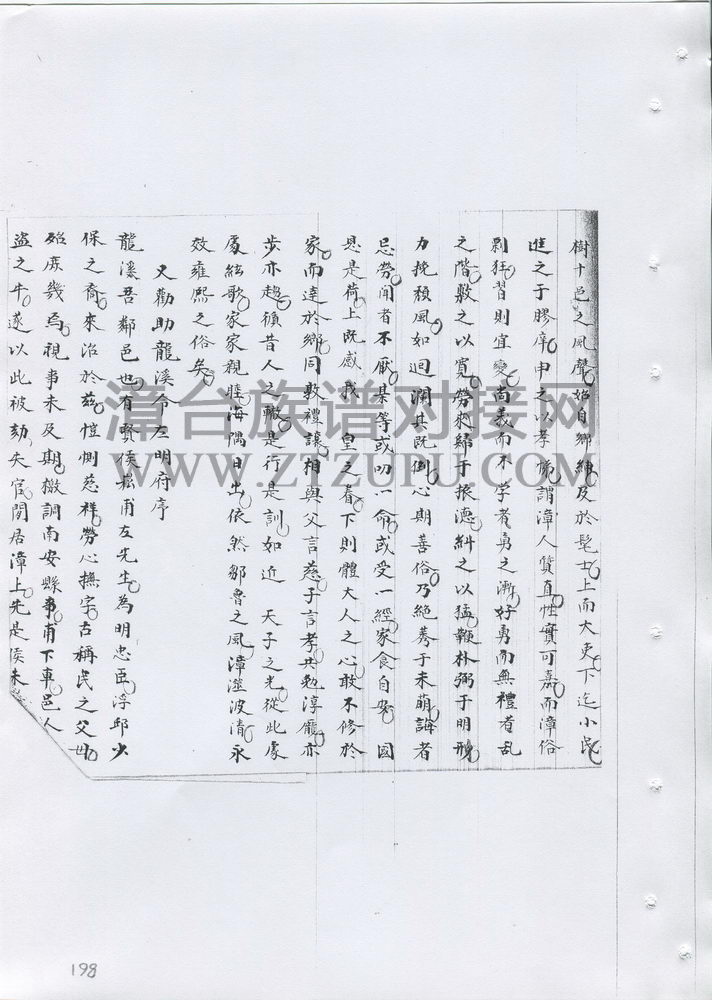 樹十邑之風聲始自鄉紳及於髦士上而大吏下迄小民
進之于膠庠申之以孝悌謂漳人質直性實可嘉而漳俗
剽狂習則宜變尚義而不学者勇之漸好勇而無禮者乱
之階敷之以寬勞來歸于振德糾之以猛鞭朴弼于明刑
力挽頹風如迴瀾其既倒心期善俗乃絕莠于未萌誨者
忌勞聞者不厭某等或叨一命或受一經家食自安國
恩是荷上既感我皇之眷下則體大人之心敢不修於
家而達於鄉同敦禮讓相與父言慈子言孝共勉淳龐亦
步亦趨循昔人之轍是行是訓如近天子之光從此處
處絃歌家家親睦海隅日出依然鄒魯之風漳澨波清永
效雍熙之俗矣
又勸助龍溪令左明府序
龍溪吾鄰邑也有賢侯嵩甫左先生為明忠臣浮邱少
保之裔來治於茲愷惻慈祥勞心撫字古稱民之父母
始庶幾焉視事未及期檄調南安縣事甫下車邑人
盜之牛遂以此被劾失官閒居漳上先是侯未
漳台族谱对接网
WWW.ZTZUPU.COM
198